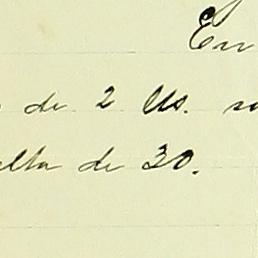 En
de 2 Us. so
elta de 30.